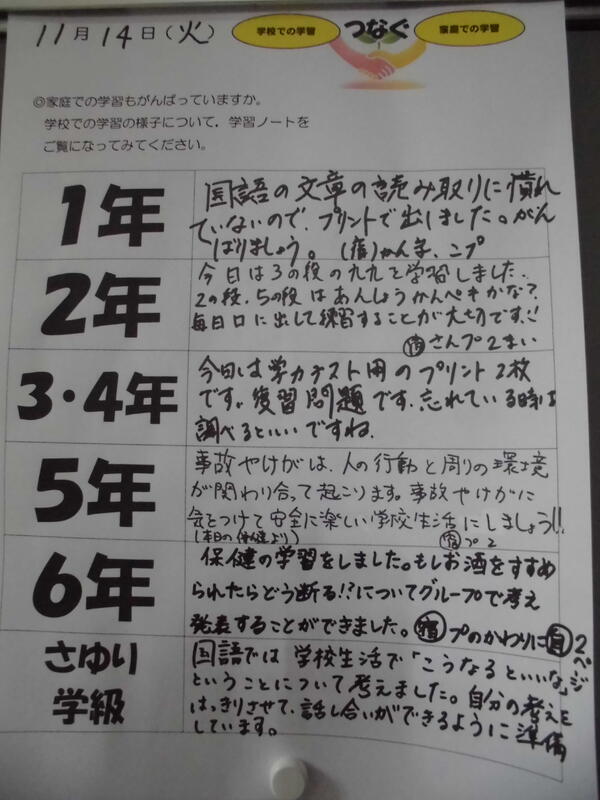 11月14日(火)
学校での学習
つなぐ
家庭での学習
◎家庭での学習もがんばっていますか。
学校での学習の様子について,学習ノートを
ご覧になってみてください。
1年
国語の文章の読み取りに慣れ
ていないので、プリントで出しました。がん
ばりましょう。 (宿)かん字、こプ
2年
今日は3の段の九九を学習しました。
2の段、5の段はあんしょうかんぺきかな?
毎日口に出して練習することが大切です!
宿 さんプ2まい
3・4年
今日は学力テスト用のプリント2枚
です。復習問題です。忘れている時は
調べるといいですね。
5年
事故やけがは、人の行動と周りの環境
が関わり合って起こります。事故やけがに
気をつけて安全に楽しい学校生活にしましょう!!
(本日の保健より) 宿 プ2
6年
保健の学習をしました。もしお酒をすすめ
られたらどう断る!?についてグループで考え
発表することができました。宿 プのかわりに自2ページ
さゆり
学級
国語では学校生活で「こうなるといいな」
ということについて考えました。自分の考えを
はっきりさせて、話し合いができるように準備
しています。